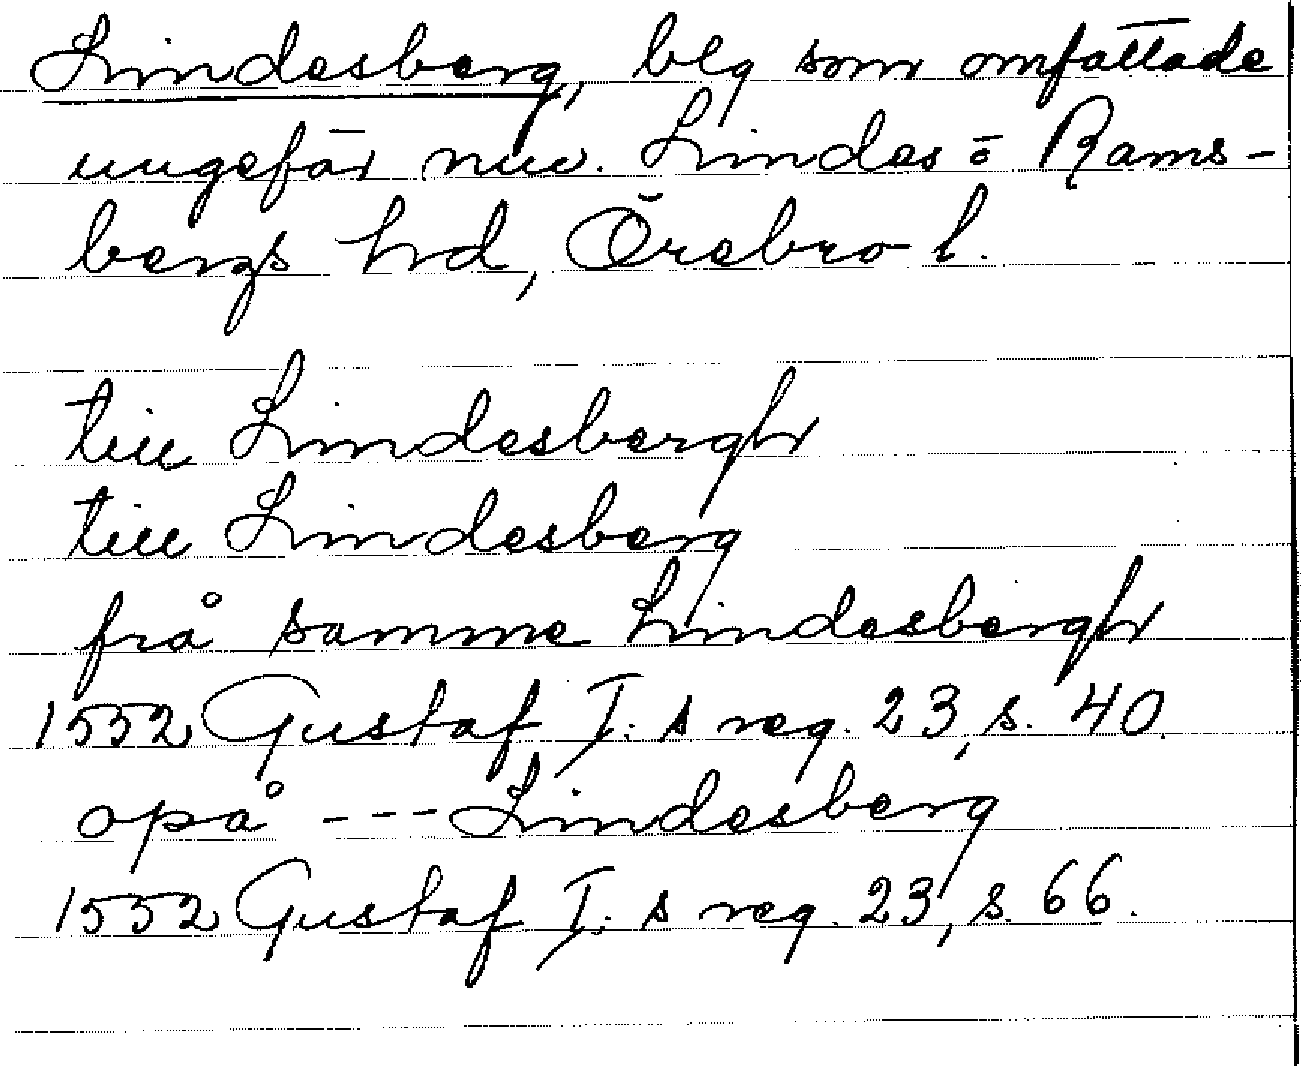 Lindesberg, blg som omfattade
ungefär nuv. Lindes o Rams-
bergs hrd, Örebro l.
till Lindesbergh
till Lindesberg
frå samme Lindesbergh
1552 Gustaf I:s reg. 23, s. 40.
opå --- Lindesberg
1552 Gustaf I:s reg. 23, s. 66.